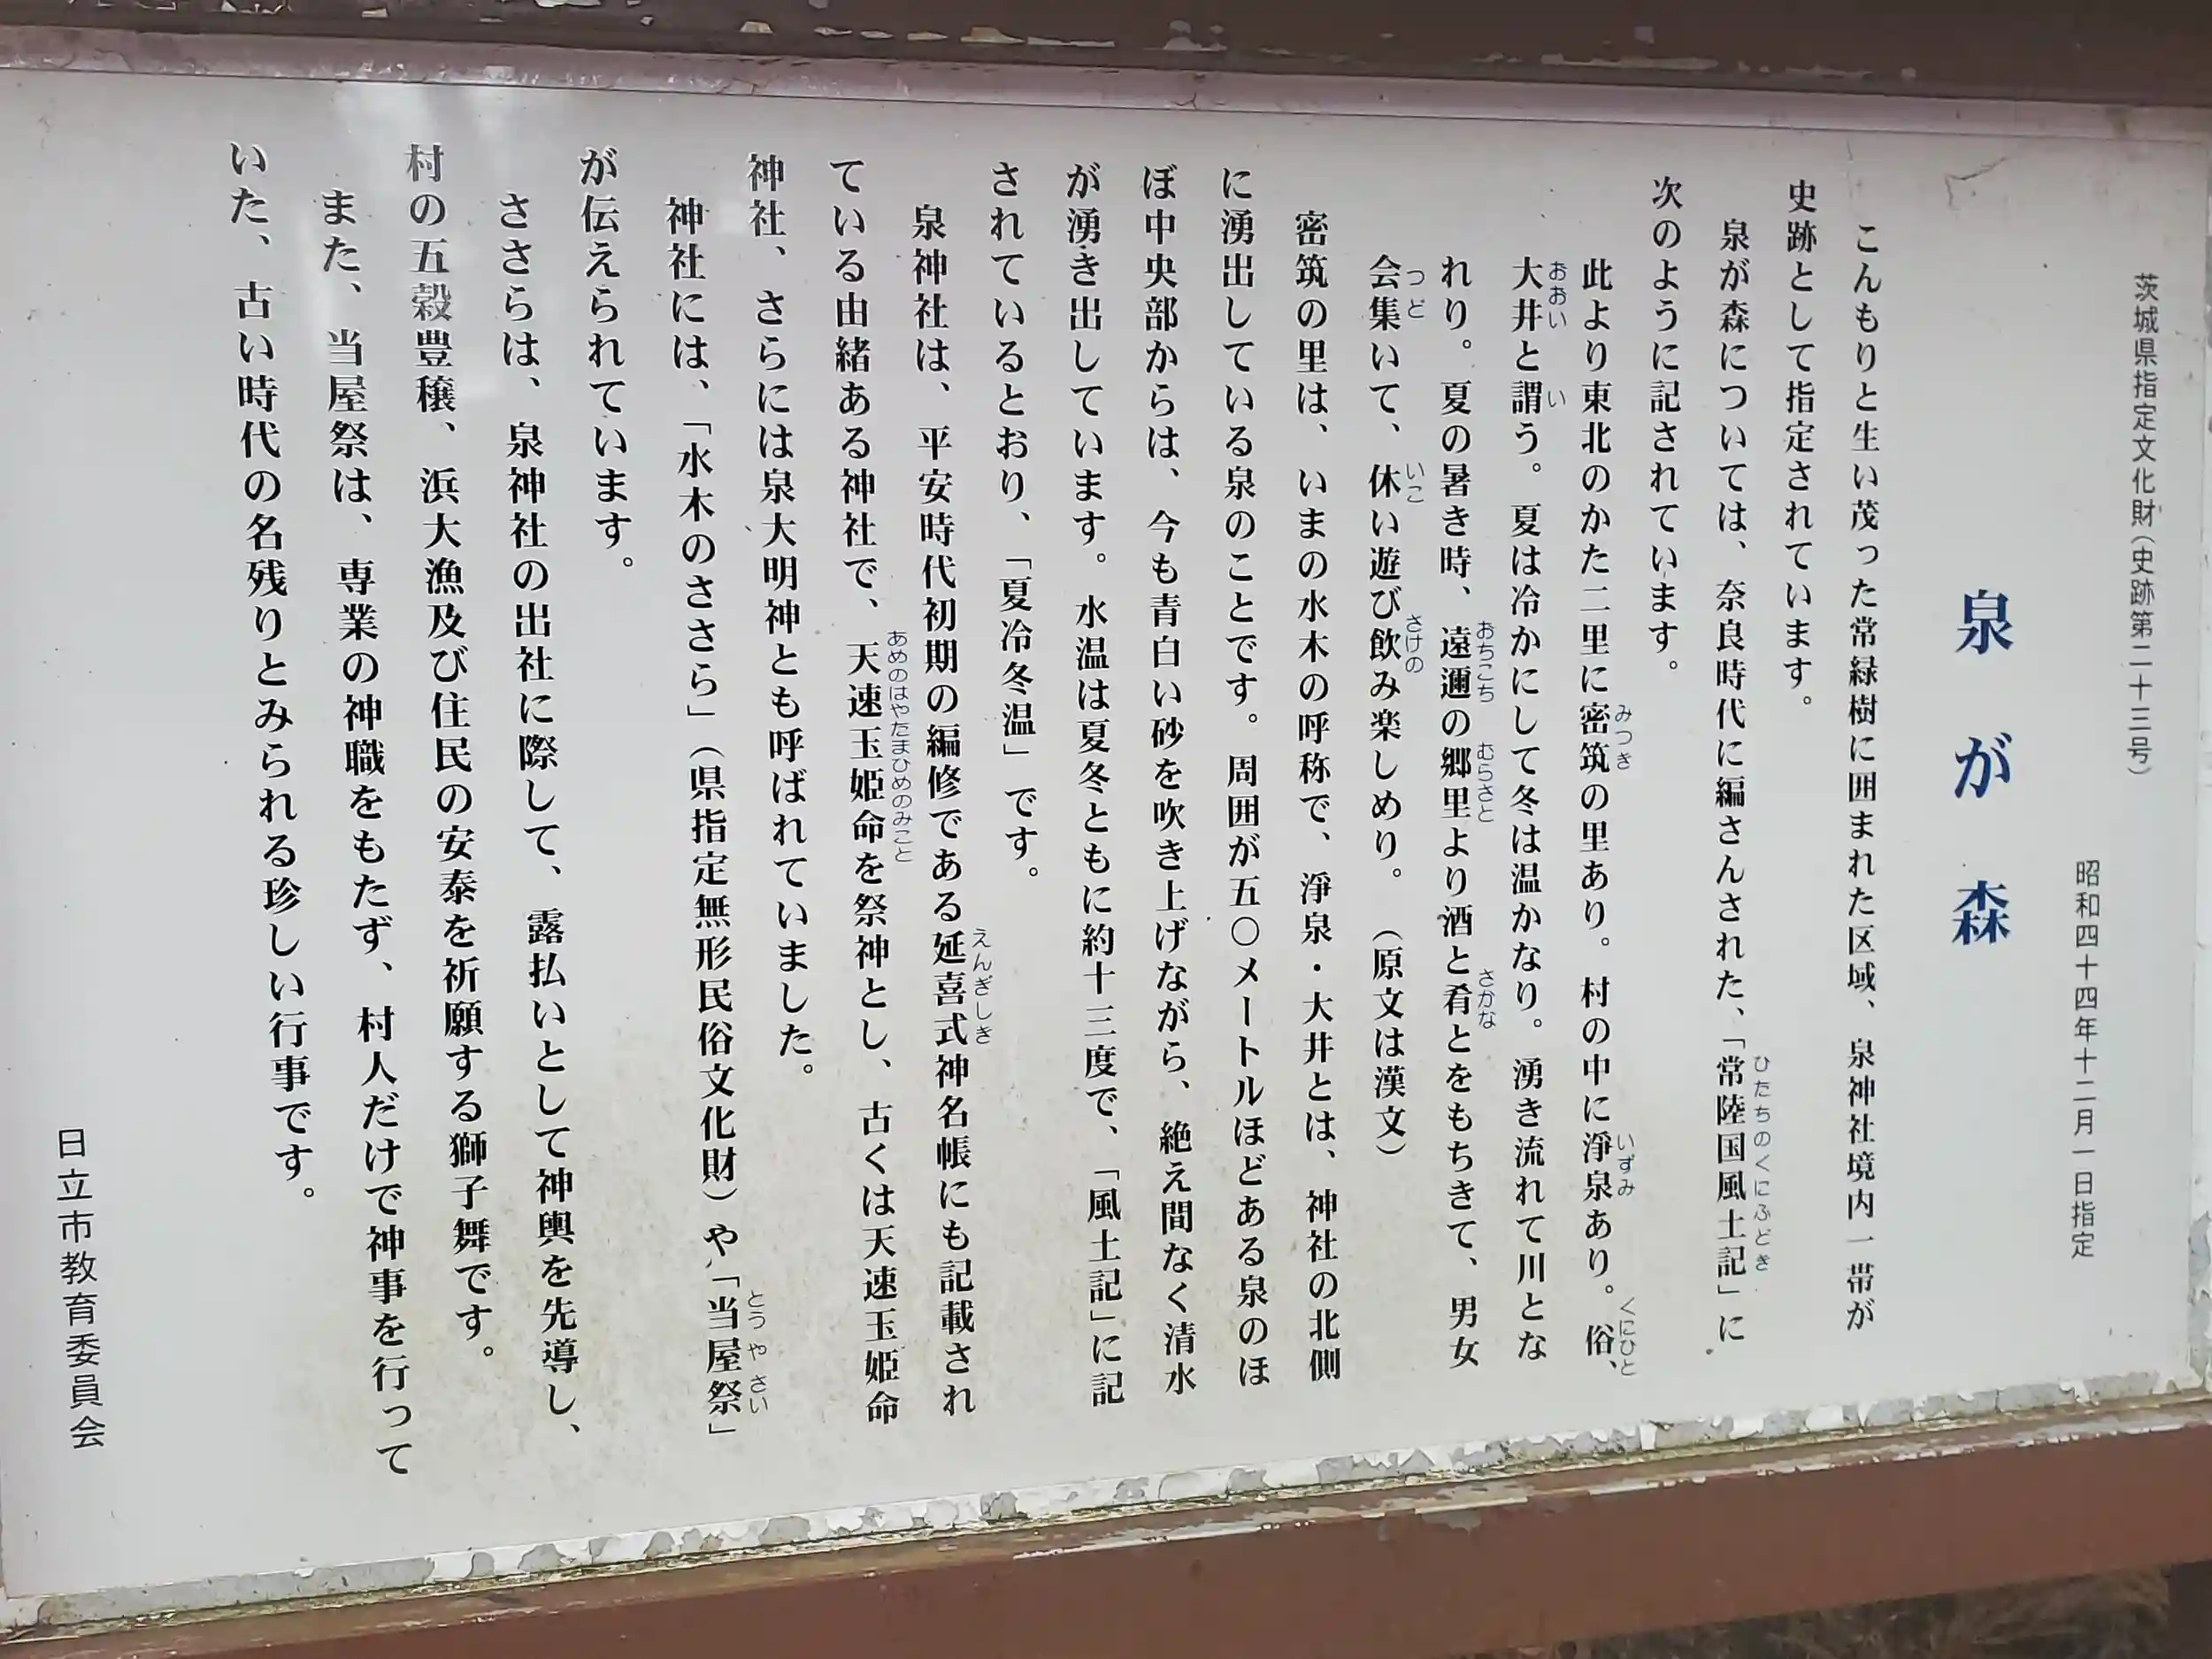 茨城県指定文化財(史跡第二十三号)
昭和四十四年十二月一日指定
泉が森
こんもりと生い茂った常緑樹に囲まれた区域、泉神社境内一帯が
史跡として指定されています。
泉が森については、奈良時代に編さんされた、「常陸国風土記」に
ひたちのくにふどき
次のように記されています。
此より東北のかた二里に密筑の里あり。村の中に淨泉あり。俗、
みつき いずみ くにひと
大井と謂う。夏は冷かにして冬は温かなり。湧き流れて川とな
おおい い
れり。夏の暑き時、遠邇の郷里より酒と肴とをもちきて、男女
おちこち むらさと さかな
会集いて、休い遊び飲み楽しめり。(原文は漢文)
つど いこ さけの
密筑の里は、いまの水木の呼称で、淨泉・大井とは、神社の北側
に湧出している泉のことです。周囲が五〇メートルほどある泉のほ
ぼ中央部からは、今も青白い砂を吹き上げながら、絶え間なく清水
が湧き出しています。水温は夏冬ともに約十三度で、「風土記」に記
されているとおり、「夏冷冬温」です。
泉神社は、平安時代初期の編修である延喜式神名帳にも記載され
えんぎしき
ている由緒ある神社で、天速玉姫命を祭神とし、古くは天速玉姫命
あめのはやたまひめのみこと
神社、さらには泉大明神とも呼ばれていました。
神社には、「水木のささら」(県指定無形民俗文化財)や「当屋祭」
とうやさい
が伝えられています。
ささらは、泉神社の出社に際して、露払いとして神輿を先導し、
村の五穀豊穣、浜大漁及び住民の安泰を祈願する獅子舞です。
また、当屋祭は、専業の神職をもたず、村人だけで神事を行って
いた、古い時代の名残りとみられる珍しい行事です。
日立市教育委員会